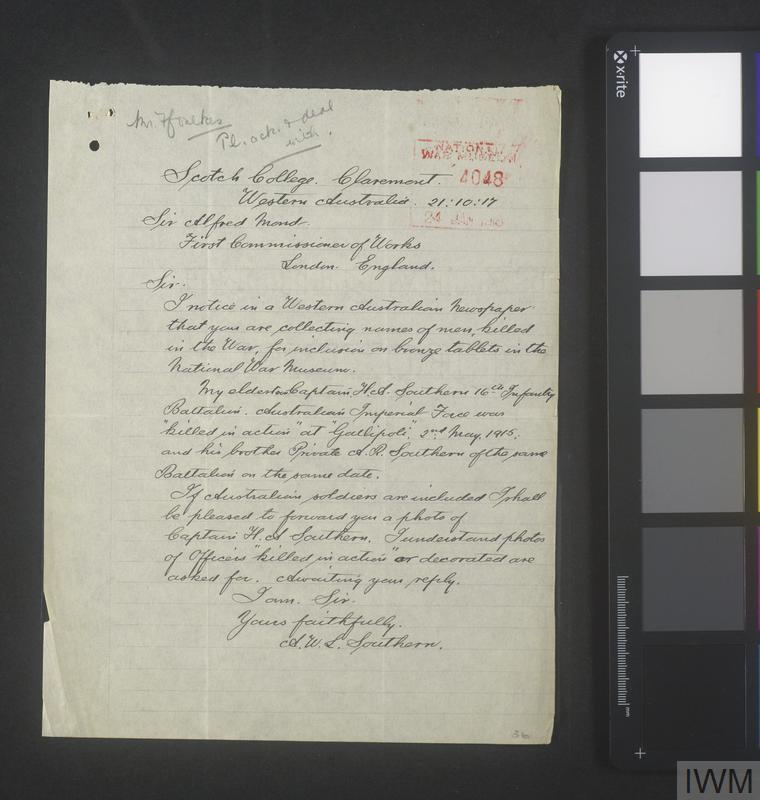 Mr. Ffoulkes
Pl. ack. & deal
with.
NATIONAL
WAR MUSEUM
4048
24 JAN 1918
Scotch College. Claremont.
Western Australia. 21:10:17
Sir Alfred Mond.
First Commissioner of Works
London. England.
Sir.
I notice in a Western Australian Newspaper
that you are collecting names of men, killed
in the War, for inclusion on bronze tablets in the
National War Museum.
My eldest son Captain H.A. Southern 16th Infantry
Battalion. Australian Imperial Force was
"killed in action" at "Gallipoli". 2nd May, 1915.
and his brother Private A.R. Southern of the same
Battalion on the same date.
If Australian soldiers are included I shall
be pleased to forward you a photo of
Captain H.A Southern. I understand photos
of Officers "killed in action" or decorated are
asked for. Awaiting your reply.
I am. Sir.
Yours faithfully.
A.W.L. Southern.
36
x-rite
mm
IWM